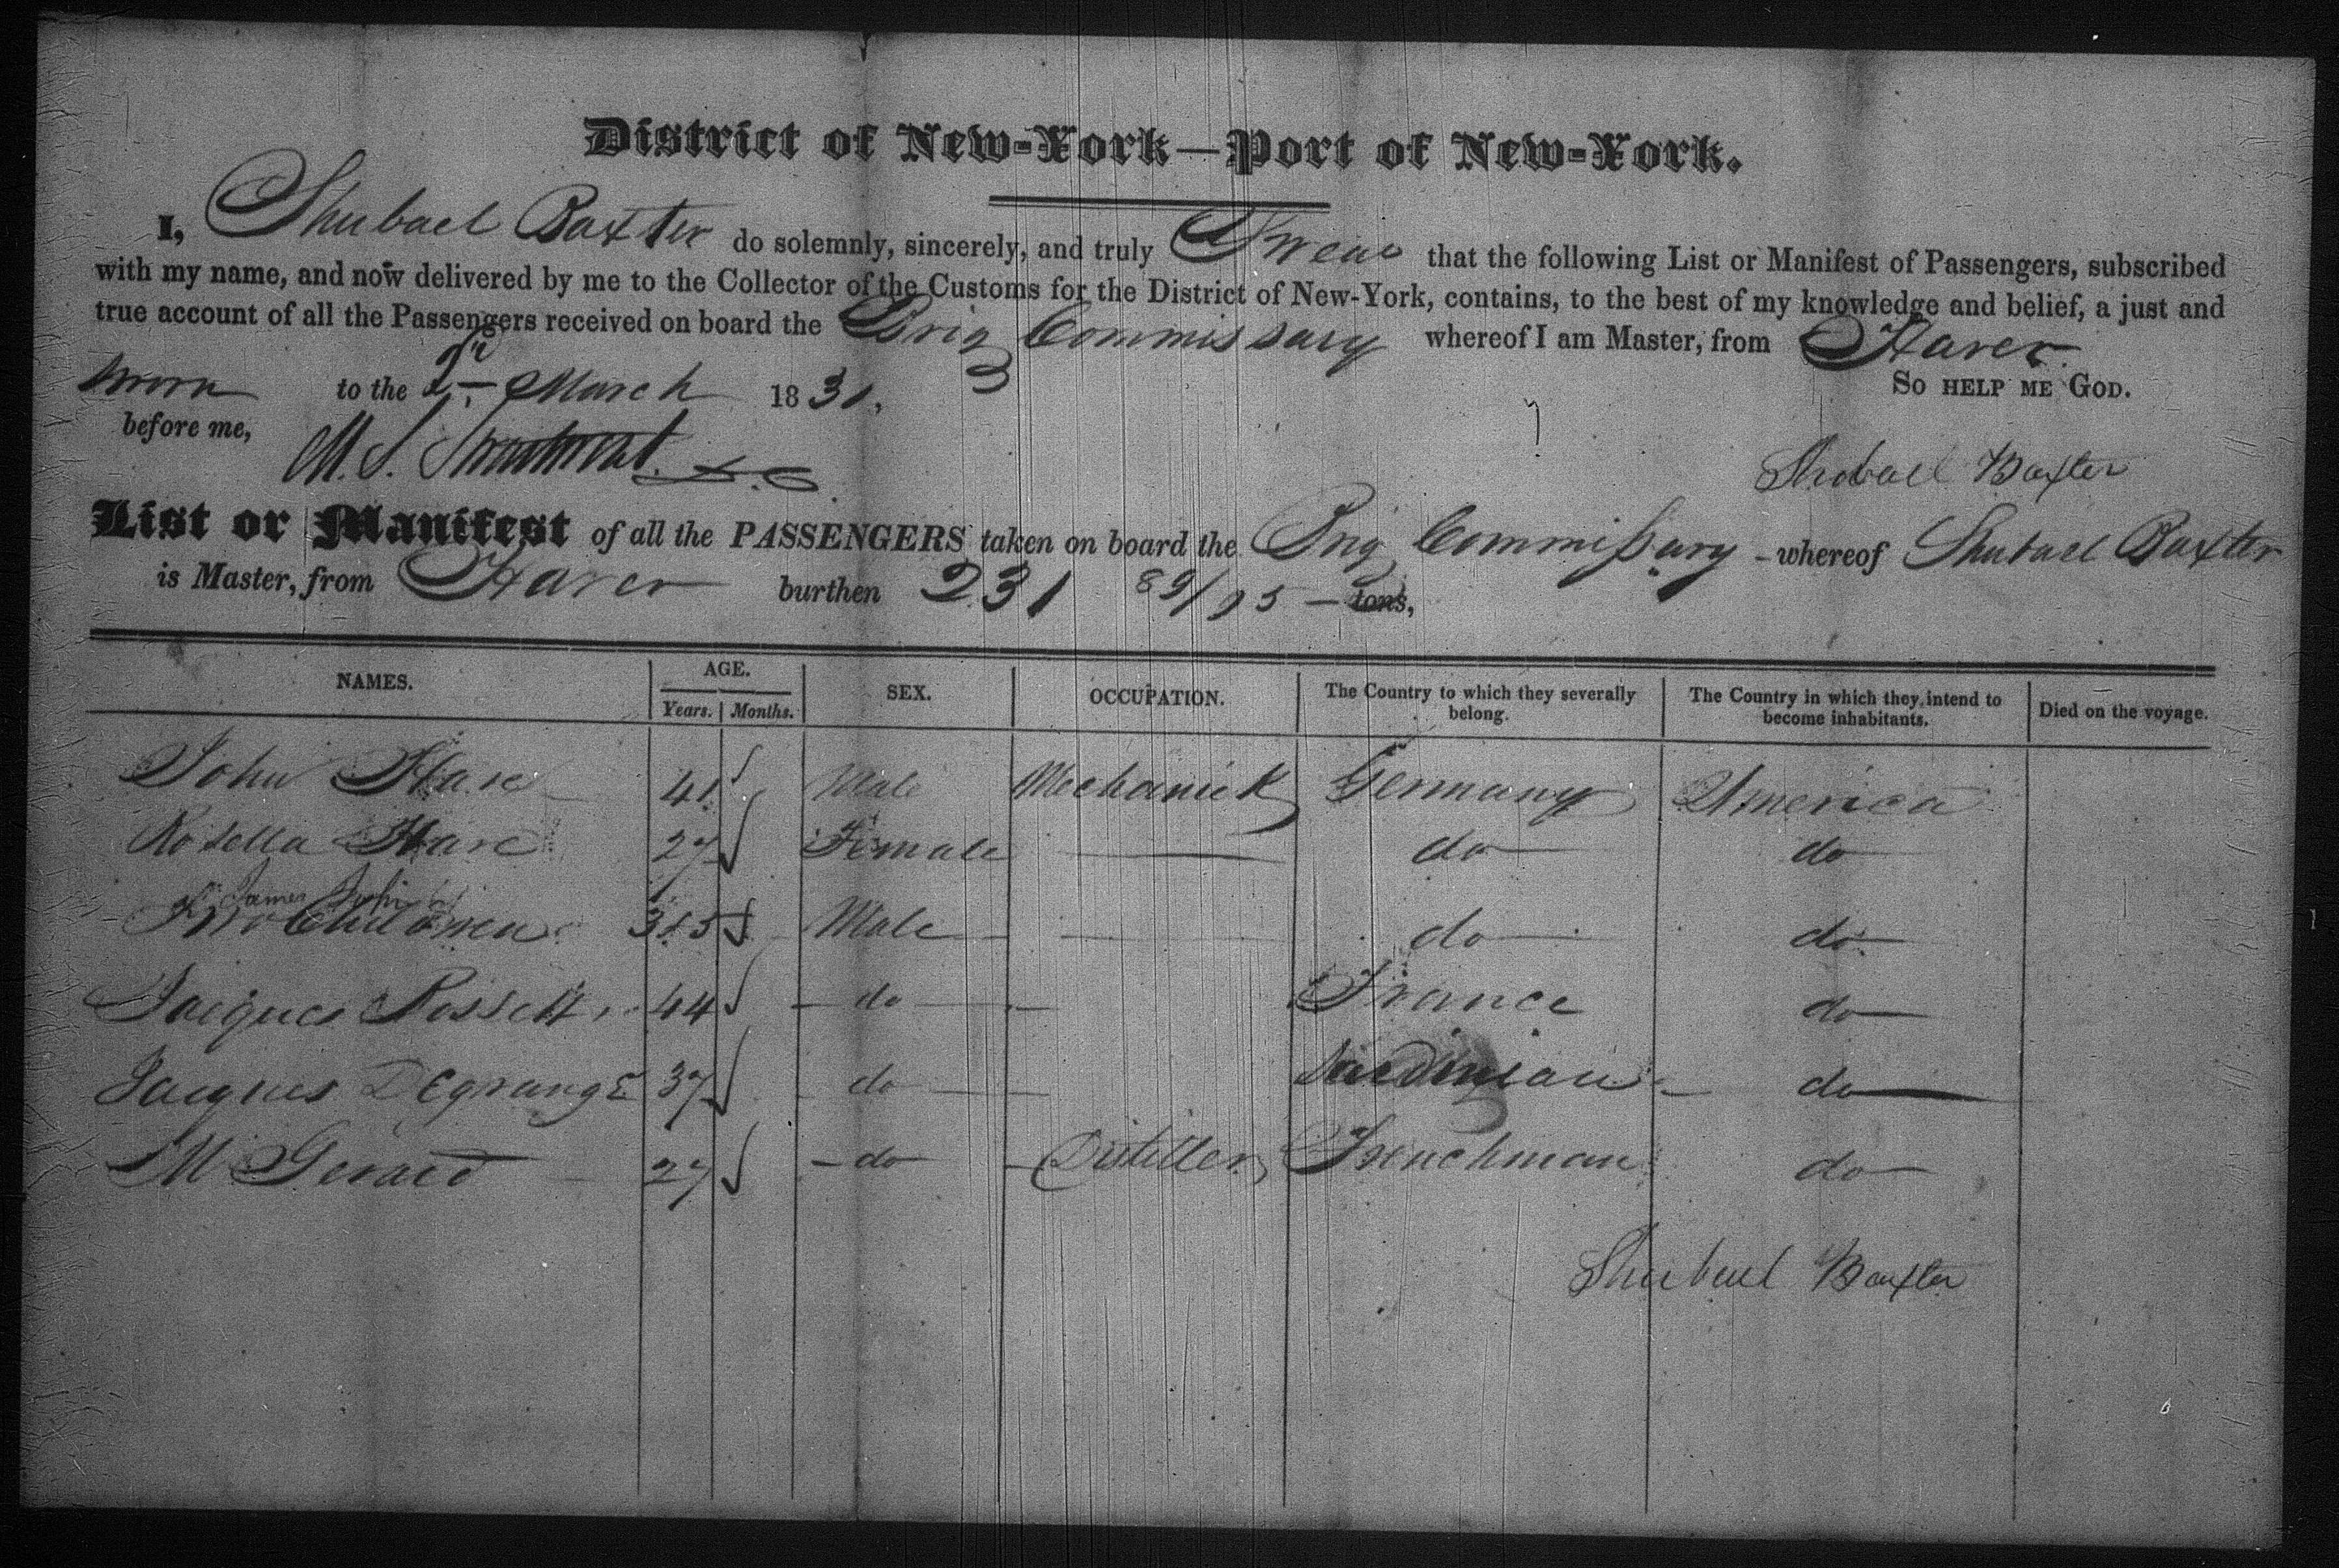 District of New-York—Port of New-York.
I, Shubael Baxter do solemnly, sincerely, and truly Swear that the following List or Manifest of Passengers, subscribed
with my name, and now delivered by me to the Collector of the Customs for the District of New-York, contains, to the best of my knowledge and belief, a just and
true account of all the Passengers received on board the Brig Commissary whereof I am Master, from Havre.
Sworn to the 2d March 1831. SO HELP ME GOD.
before me,
M. S. D.C. Shubael Baxter
List or Manifest of all the PASSENGERS taken on board the Brig Commissary - whereof Shubael Baxter
is Master, from Havre burthen 231 89/95 — tons,
NAMES. AGE. Years. Months. SEX. OCCUPATION. The Country to which they severally belong. The Country in which they intend to become inhabitants. Died on the voyage.
John Hare 41 Male Mechanick Germany America
Rosella Hare 27 Female — do do
James John
Two Children 3 & 5 Male — do do
Jacques Rossett 44 do — France do
Jacques DEgrangE 37 do — Sardinian do
M Gerard 27 do Distiller Frenchman do
Shubael Baxter